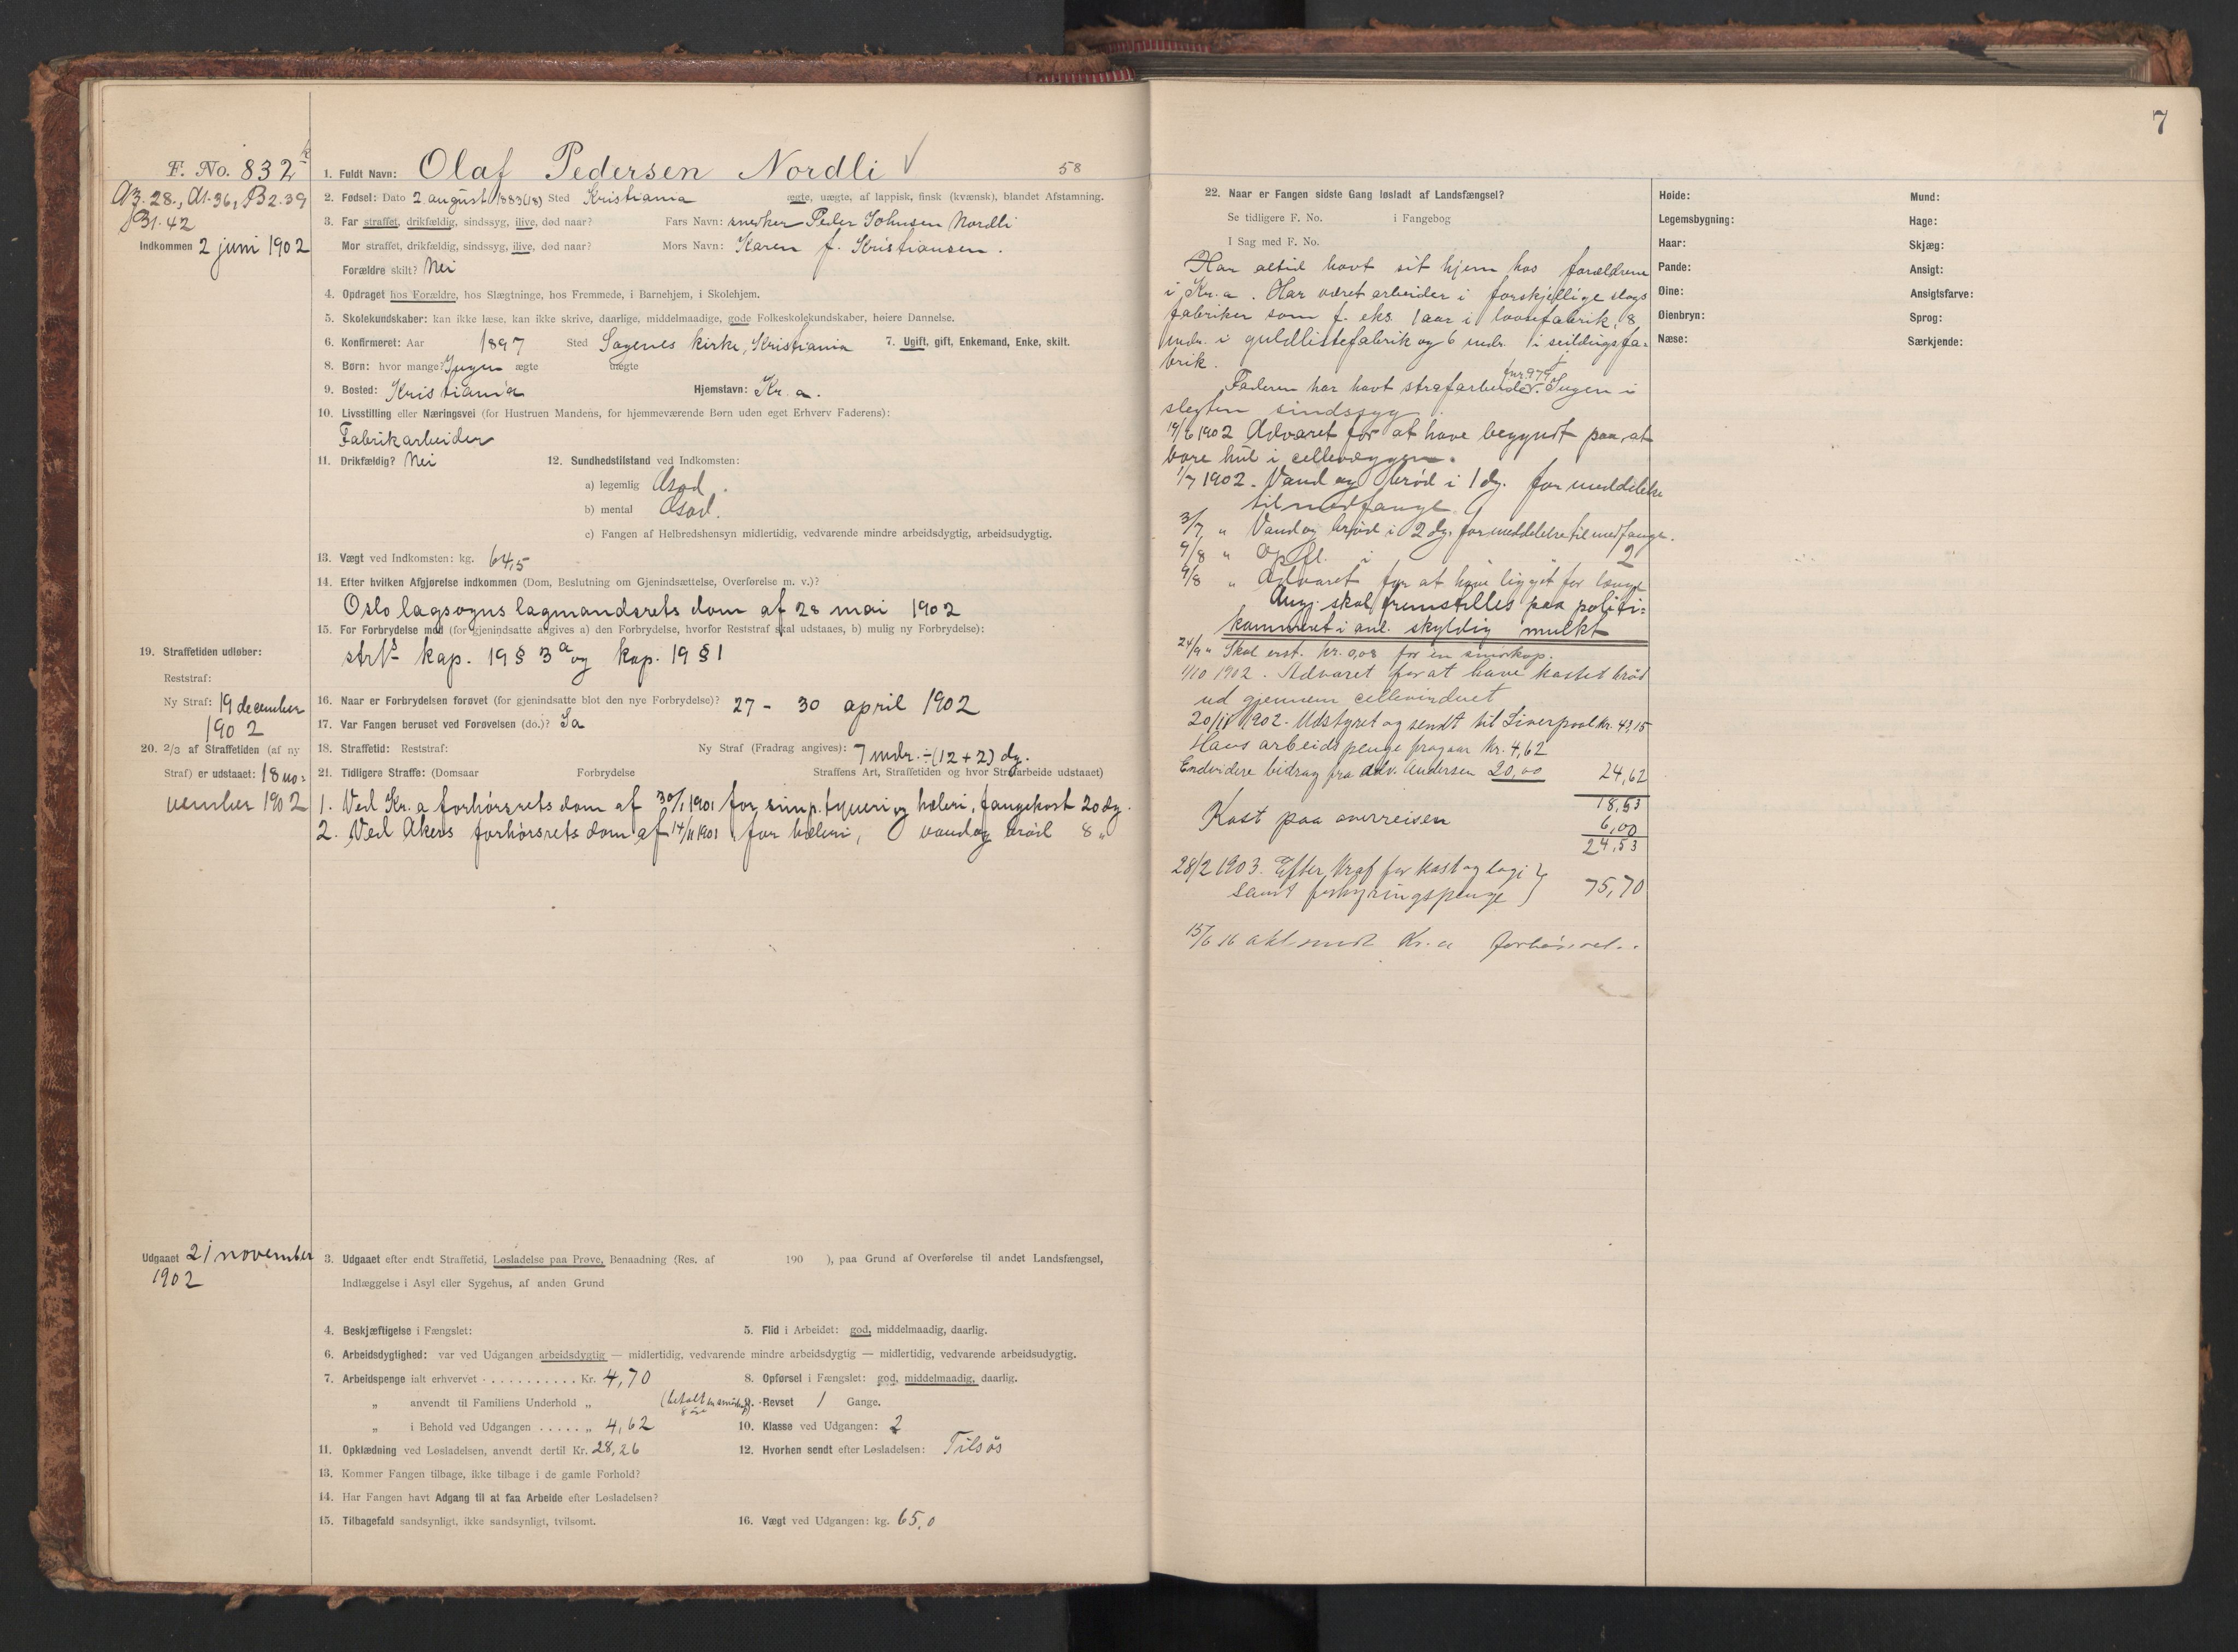 F. No. 832
A3.28., A1.36, B2.39
B1.42
Indkommen 2 juni 1902
19. Straffetiden udløber:
Reststraf:
Ny Straf: 19 december
1902
20. 2/3 af Straffetiden (af ny
Straf) er udstaaet: 18 no=
vember 1902
Udgaaet 21 november
1902
1. Fuldt Navn: Olaf Pedersen Nordli √ 58
2. Fødsel: Dato 2 august 1883 (18) Sted Kristiania ægte, uægte, af lappisk, finsk (kvænsk), blandet Afstamning.
3. Far straffet, drikfældig, sindssyg, ilive, død naar? Fars Navn: snedker Peder Johnsen Nordli
Mor straffet, drikfældig, sindssyg, ilive, død naar? Mors Navn: Karen f. Kristiansen.
Forældre skilt? Nei
4. Opdraget hos Forældre, hos Slægtninge, hos Fremmede, i Barnehjem, i Skolehjem.
5. Skolekundskaber: kan ikke læse, kan ikke skrive, daarlige, middelmaadige, gode Folkeskolekundskaber, høiere Dannelse.
6. Konfirmeret: Aar 1897 Sted Sagenes kirke, Kristiania 7. Ugift, gift, Enkemand, Enke, skilt.
8. Børn: hvor mange? Ingen ægte uægte
9. Bosted: Kristiania Hjemstavn: Kr.a.
10. Livsstilling eller Næringsvei (for Hustruen Mandens, for hjemmeværende Børn uden eget Erhverv Faderens):
Fabrikarbeider
11. Drikfældig? Nei 12. Sundhedstilstand ved Indkomsten:
a) legemlig God.
b) mental God.
c) Fangen af Helbredshensyn midlertidig, vedvarende mindre arbeidsdygtig, arbeidsudygtig.
13. Vægt ved Indkomsten: kg. 64,5
14. Efter hvilken Afgjørelse indkommen (Dom, Beslutning om Gjenindsættelse, Overførelse m. v.)?
Oslo lagsogns lagmandsrets dom af 28 mai 1902
15. For Forbrydelse mod (for gjenindsatte angives a) den Forbrydelse, hvorfor Reststraf skal udstaaes, b) mulig ny Forbrydelse):
kap. 19 § 3 a og kap. 19 § 1
16. Naar er Forbrydelsen forøvet (for gjenindsatte blot den nye Forbrydelse)? 27 - 30 april 1902
17. Var Fangen beruset ved Forøvelsen (do.)? Ja
18. Straffetid: Reststraf: Ny Straf (Fradrag angives): 7 mdr. ÷ (12 + 2) dg.
21. Tidligere Straffe: (Domsaar Forbrydelse Straffens Art, Straffetiden og hvor Strafarbeide udstaaet)
1. Ved Kr.a forhørsrets dom af 30/1 1901 for simp. tyveri og hæleri, fangekost 20 dg.
2. Ved Akers forhørsrets dom af 14/11 1901 for hæleri, vand og brød 8 "
3. Udgaaet efter endt Straffetid, Løsladelse paa Prøve, Benaadning (Res. af 190 ), paa Grund af Overførelse til andet Landsfængsel,
Indlæggelse i Asyl eller Sygehus, af anden Grund
4. Beskjæftigelse i Fængslet: 5. Flid i Arbeidet: god, middelmaadig, daarlig.
6. Arbeidsdygtighed: var ved Udgangen arbeidsdygtig — midlertidig, vedvarende mindre arbeidsdygtig — midlertidig, vedvarende arbeidsudygtig.
7. Arbeidspenge ialt erhvervet . . . . . . . . . . . Kr. 4,70 8. Opførsel i Fængslet: god, middelmaadig, daarlig.
" anvendt til Familiens Underhold " (betalt 8 øre 9. Revset 1 Gange.
" i Behold ved Udgangen . . . . . " 4,62 10. Klasse ved Udgangen: 2
11. Opklædning ved Løsladelsen, anvendt dertil Kr. 28,26 12. Hvorhen sendt efter Løsladelsen: Tilsøs
13. Kommer Fangen tilbage, ikke tilbage i de gamle Forhold?
14. Har Fangen havt Adgang til at faa Arbeide efter Løsladelsen?
15. Tilbagefald sandsynligt, ikke sandsynligt, tvilsomt. 16. Vægt ved Udgangen: kg. 65,0
7
22. Naar er Fangen sidste Gang løsladt af Landsfængsel?
Se tidligere F. No. i Fangebog
I Sag med F. No.
Har altid havt sit hjem hos forældrene
i Kr.a. Har været arbeider i forskjellige slags
fabriker som f. eks. 1 aar i laasefabrik, 8
mdr. i guldlistefabrik og 6 mdr. i seildugsfa=
brik.
Faderen har havt strafarbeide. Ingen i
slegten sindssyg.
19/6 1902 Advaret for at have begyndt paa at
bore hul i cellevæggen.
1/7 1902. Vand og brød i 1 dg. for meddelelse
til medfange.
3/7 " Vand og brød i 2 dg. for meddelelse til medfange.
9/8 " Opfl. i 2
9/8 " Advaret for at have ligget for længe
Ang. skal fremstilles paa politi=
kammeret i anl. skyldig mulkt
24/9 " Skal erst. kr. 0,08 for en smørkop.
1/10 1902. Advaret for at have kastet brød
ud gjennem cellevinduet
20/11 1902. Udstyret og sendt til Liverpool kr. 43,15
Hans arbeidspenge fragaar kr. 4,62
Endvidere bidrag fra adv. Andersen 20,00 24,62
18,53
Kost paa overreisen 6,00
24,53
28/2 1903. Efter kraf for kost og logi
samt forhyringspenge } 75,70
15/6 16 akt sendt Kr.a forhørsret.
Høide:
Legemsbygning:
Haar:
Pande:
Øine:
Øienbryn:
Næse:
Mund:
Hage:
Skjæg:
Ansigt:
Ansigtsfarve:
Sprog:
Særkjende: